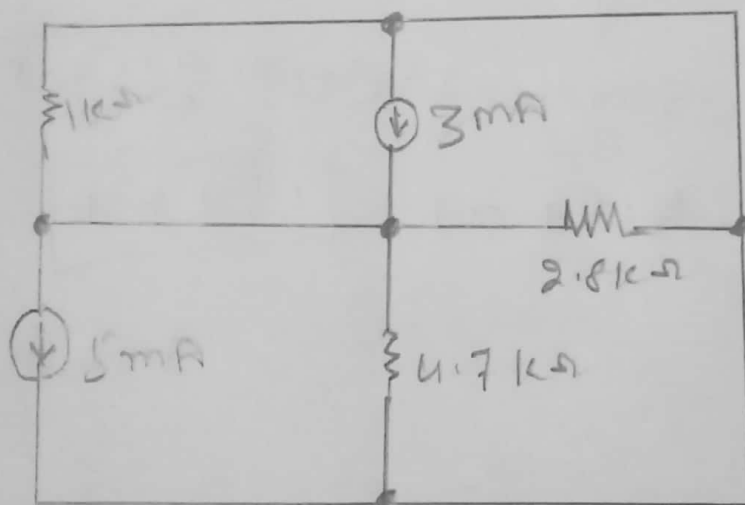 1kΩ
3mA
2.8kΩ
5mA
4.7kΩ